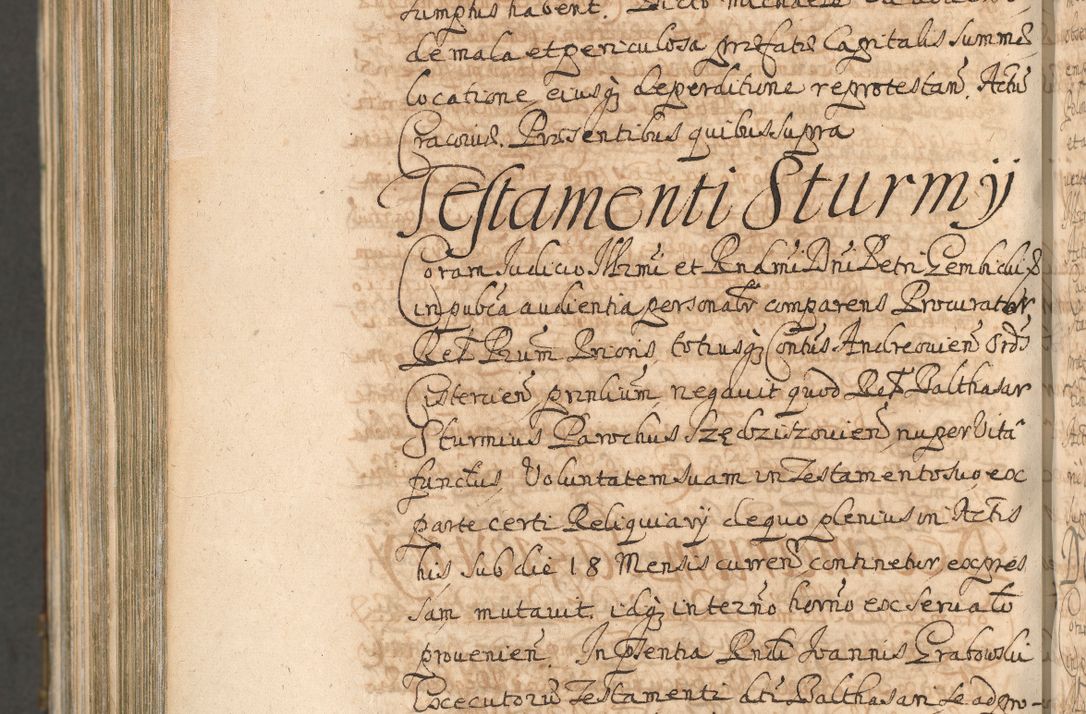 sumptus habent. Dicto Michaele
de mala et periculosa præfatæ Capitalis Summæ
locatione, eiusq; deperditione reprotestan. Actu
Cracoviæ. Præsentibus quibus supra
Testamenti Sturmÿ
Coram Iudicio Illrmi et Rndmi Dni Petri Gembicki
in pubca audientia personalr comparens Procurator
Rel. Prum Prioris, totiusq; Contus Andreovien Ords
Cistercien prinlium negavit quod Rel. Balthasar
Sturmius Parochus Szędziszovien nuper Vita
functus, Voluntatem suam in Testamento suo ex
parte certi Reliquiarÿ de quo plenius in Actis
his sub die 18 Mensis curren continetur expres
sam mutavit. idq; in terno horno ex servato
provenien. In psentia Rndi Ioannis Grabowski
Executoris Testamenti dti Balthasari se ad pro-